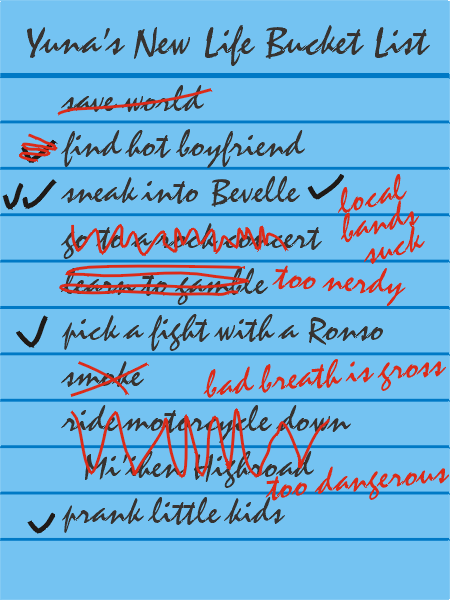 Yuna's New Life Bucket List
save world
find hot boyfriend
sneak into Bevelle
local
bands
suck
go to a rock concert
learn to gamble too nerdy
pick a fight with a Ronso
smoke bad breath is gross
ride motorcycle down
Mi'ihen Highroad
too dangerous
prank little kids